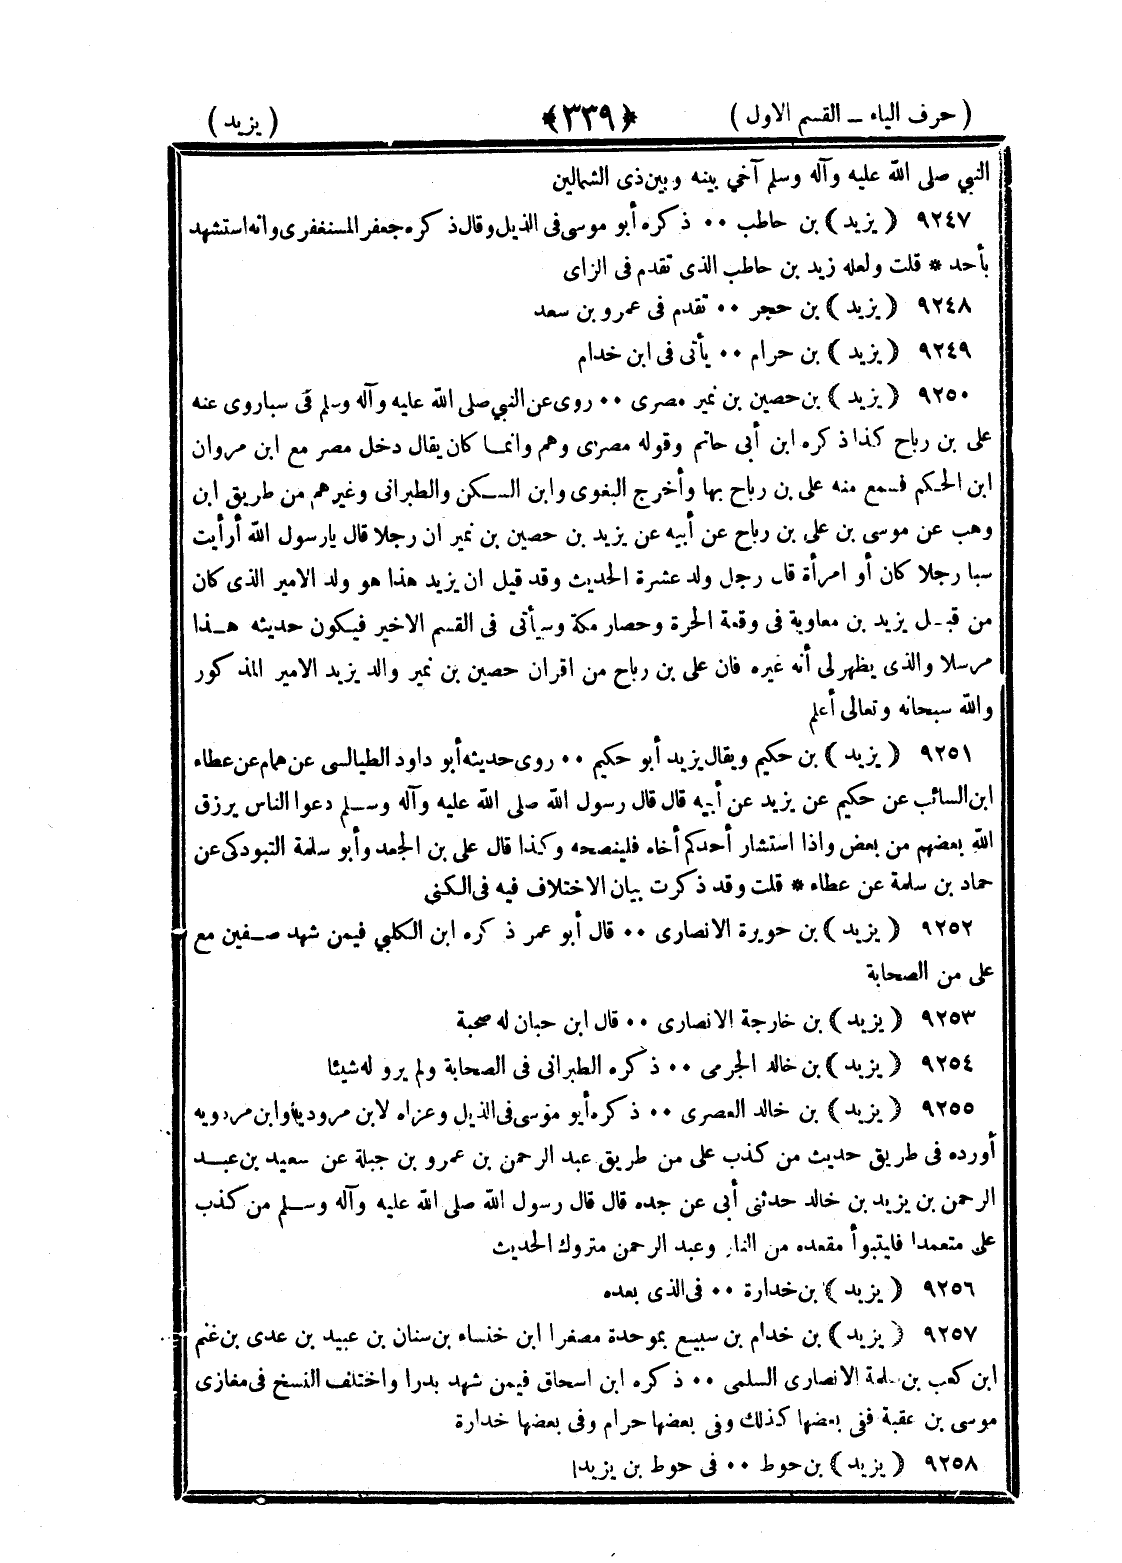 ( حرف الياء ــ القسم الاول )
﴿ ٣٣٩ ﴾
( يزيد )
النبي صلى الله عليه وآله وسلم آخي بينه وبين ذى الشمالين
٩٢٤٧ ( يزيد ) بن حاطب ٠٠ ذكره أبو موسى فى الذيل وقال ذكره جعفر المستغفرى وانه استشهد
بأحد * قلت ولعله زيد بن حاطب الذى تقدم فى الزاى
٩٢٤٨ ( يزيد ) بن حجر ٠٠ تقدم فى عمرو بن سعد
٩٢٤٩ ( يزيد ) بن حرام ٠٠ يأتى فى ابن خدام
٩٢٥٠ ( يزيد ) بن حصين بن نمير مصرى ٠٠ روى عن النبي صلى الله عليه وآله وسلم فى سبا روى عنه
على بن رباح كذا ذكره ابن أبى حاتم وقوله مصرى وهم وانما كان يقال دخل مصر مع ابن مروان
ابن الحكم فسمع منه على بن رباح بها وأخرج البغوى وابن السكن والطبرانى وغيرهم من طريق ابن
وهب عن موسى بن على بن رباح عن أبيه عن يزيد بن حصين بن نمير ان رجلا قال يارسول الله أرأيت
سبا رجلا كان أو امرأة قال رجل ولد عشرة الحديث وقد قيل ان يزيد هذا هو ولد الامير الذى كان
من قبل يزيد بن معاوية فى وقعة الحرة وحصار مكة وسيأتى فى القسم الاخير فيكون حديثه هذا
مرسلا والذى يظهر لى أنه غيره فان على بن رباح من اقران حصين بن نمير والد يزيد الامير المذكور
والله سبحانه وتعالى أعلم
٩٢٥١ ( يزيد ) بن حكيم ويقال يزيد أبو حكيم ٠٠ روى حديثه أبو داود الطيالسى عن همام عن عطاء
ابن السائب عن حكيم عن يزيد عن أبيه قال قال رسول الله صلى الله عليه وآله وسلم دعوا الناس يرزق
الله بعضهم من بعض واذا استشار أحدكم أخاه فلينصحه وكذا قال على بن الجعد وأبو سلمة التبوذكى عن
حماد بن سلمة عن عطاء * قلت وقد ذكرت بيان الاختلاف فيه فى الكنى
٩٢٥٢ ( يزيد ) بن حويرة الانصارى ٠٠ قال أبو عمر ذكره ابن الكلبي فيمن شهد صفين مع
على من الصحابة
٩٢٥٣ ( يزيد ) بن خارجة الانصارى ٠٠ قال ابن حبان له صحبة
٩٢٥٤ ( يزيد ) بن خالد الجرمى ٠٠ ذكره الطبرانى فى الصحابة ولم يرو له شيئا
٩٢٥٥ ( يزيد ) بن خالد العصرى ٠٠ ذكره أبو موسى فى الذيل وعزاه لابن مردويه وابن مردويه
أورده فى طريق حديث من كذب على من طريق عبد الرحمن بن عمرو بن جبلة عن سعيد بن عبد
الرحمن بن يزيد بن خالد حدثنى أبى عن جده قال قال رسول الله صلى الله عليه وآله وسلم من كذب
على متعمدا فليتبوأ مقعده من النار وعبد الرحمن متروك الحديث
٩٢٥٦ ( يزيد ) بن خدارة ٠٠ فى الذى بعده
٩٢٥٧ ( يزيد ) بن خدام بن سبيع بموحدة مصغرا ابن خنساء بن سنان بن عبيد بن عدى بن غنم
ابن كعب بن سلمة الانصارى السلمى ٠٠ ذكره ابن اسحاق فيمن شهد بدرا واختلف النسخ فى مغازى
موسى بن عقبة فنى بعضها كذلك وفى بعضها حرام وفى بعضها خدارة
٩٢٥٨ ( يزيد ) بن حوط ٠٠ فى حوط بن يزيد